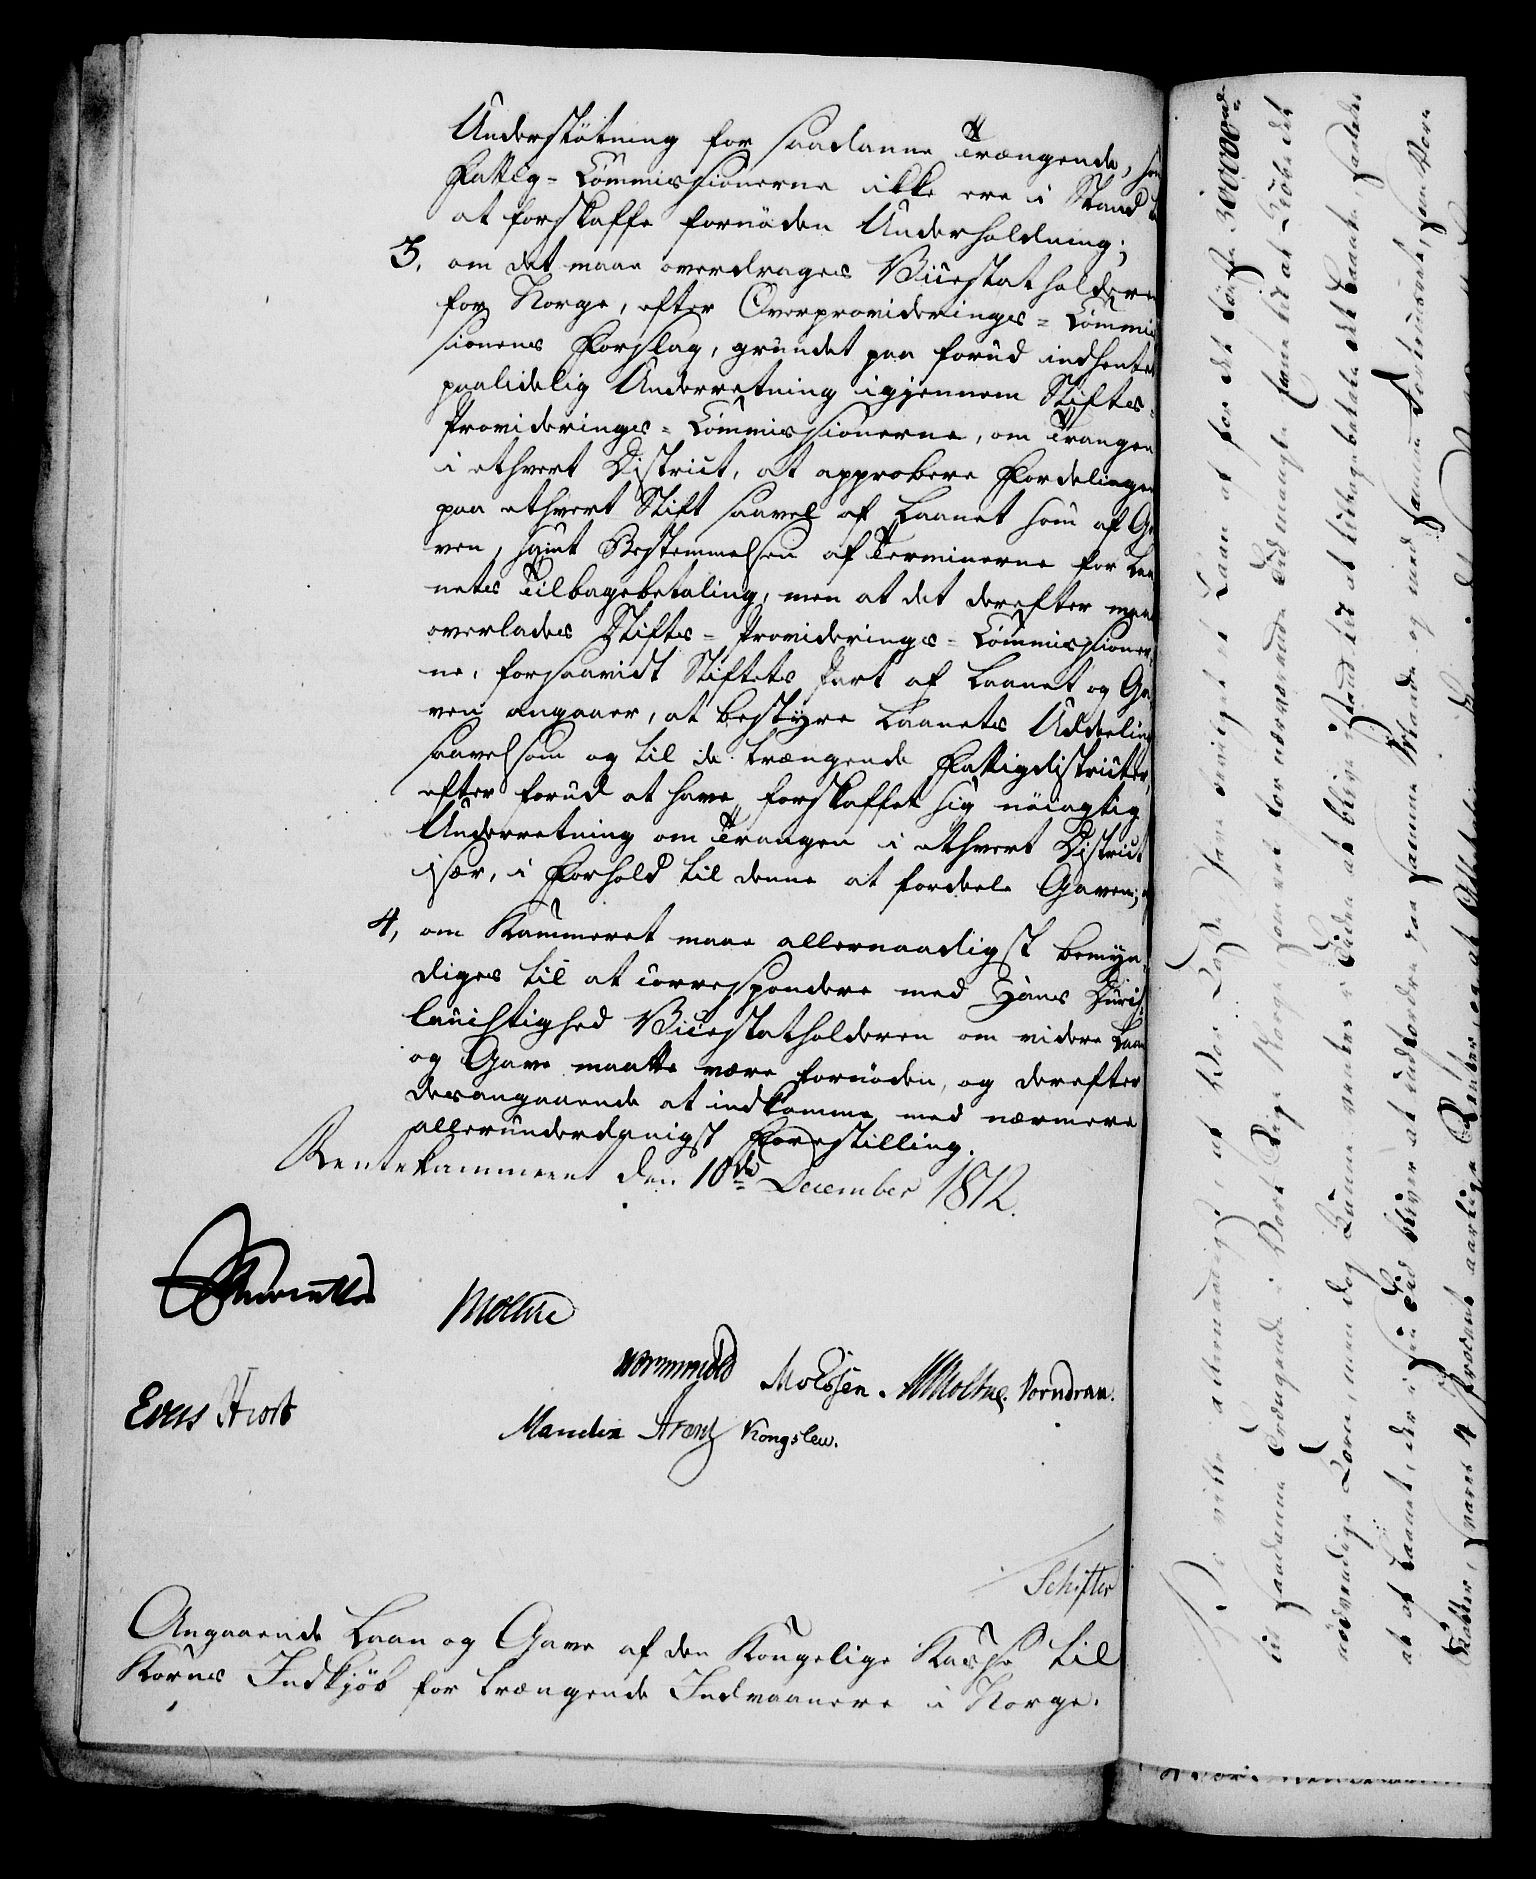 Understøtning for saadanne Trængende, som
Fattig-Commissionerne ikke ere i Stand
at forskaffe fornøden Underholdning;
3, om det maae overdrages Vicestatholderen
for Norge, efter Overprovideringes-Commis
sionens Forslag, grundet paa forud indhentet
paalidelig Underretning igjennem Stifts-
Provideringes-Commissionerne, om Trangen
i ethvert District, at approbere Fordelingen
paa ethvert Stift saavel af Laanet som af Ga
ven, samt Bestemmelsen af Terminerne for Laa
nets Tilbagebetaling, men at det derefter maae
overlades Stifts-Provideringes-Commissioner
ne, forsaavidt Stiftets Part af Laanet og Ga
ven angaaer, at bestyre Laanets Uddeling
saavelsom og til de trængende Fattigdistricter,
efter forud at have forskaffet sig nøiagtig
Underretning om Trangen i ethvert District
især, i Forhold til denne at fordeele Gaven;
4, om Kammeret maae allernaadigst bemyn-
diges til at correspondere med Hans Durch-
lauchtighed Vicestatholderen om videre Laan
og Gave maatte være fornøden, og derefter
desangaaende at indkomme med nærmere
allerunderdanigst Forestilling.
Rentekammeret den 10de December 1812.
Moltke
Wormskiold Moldsen. Moltke. Vorndran.
Hiort
Mandix Arentz Kongslew.
Schifter
Angaaende Laan og Gave af den Kongelige Kasse til
Korns Indkjøb for trængende Indvaanere i Norge.
Vi ville allernaadigst, at Vor Casse have bevilget et Laan af for det første 30000
til saadanne Trængende i Vort Rige Norge, som ere for nærværende Tid mangle Evne til at Kjøbe det
nødvendige Korn, men dog kunne ventes i Tiden at blive i Stand til at tilbagebetale det Laante, saaledes
at af Laanet, der i sin Tid bliver at udfordre paa samme Maade og med samme Fortrinsret, som Vore
Skatter, svares 4 Procent aarlige Renter, og at